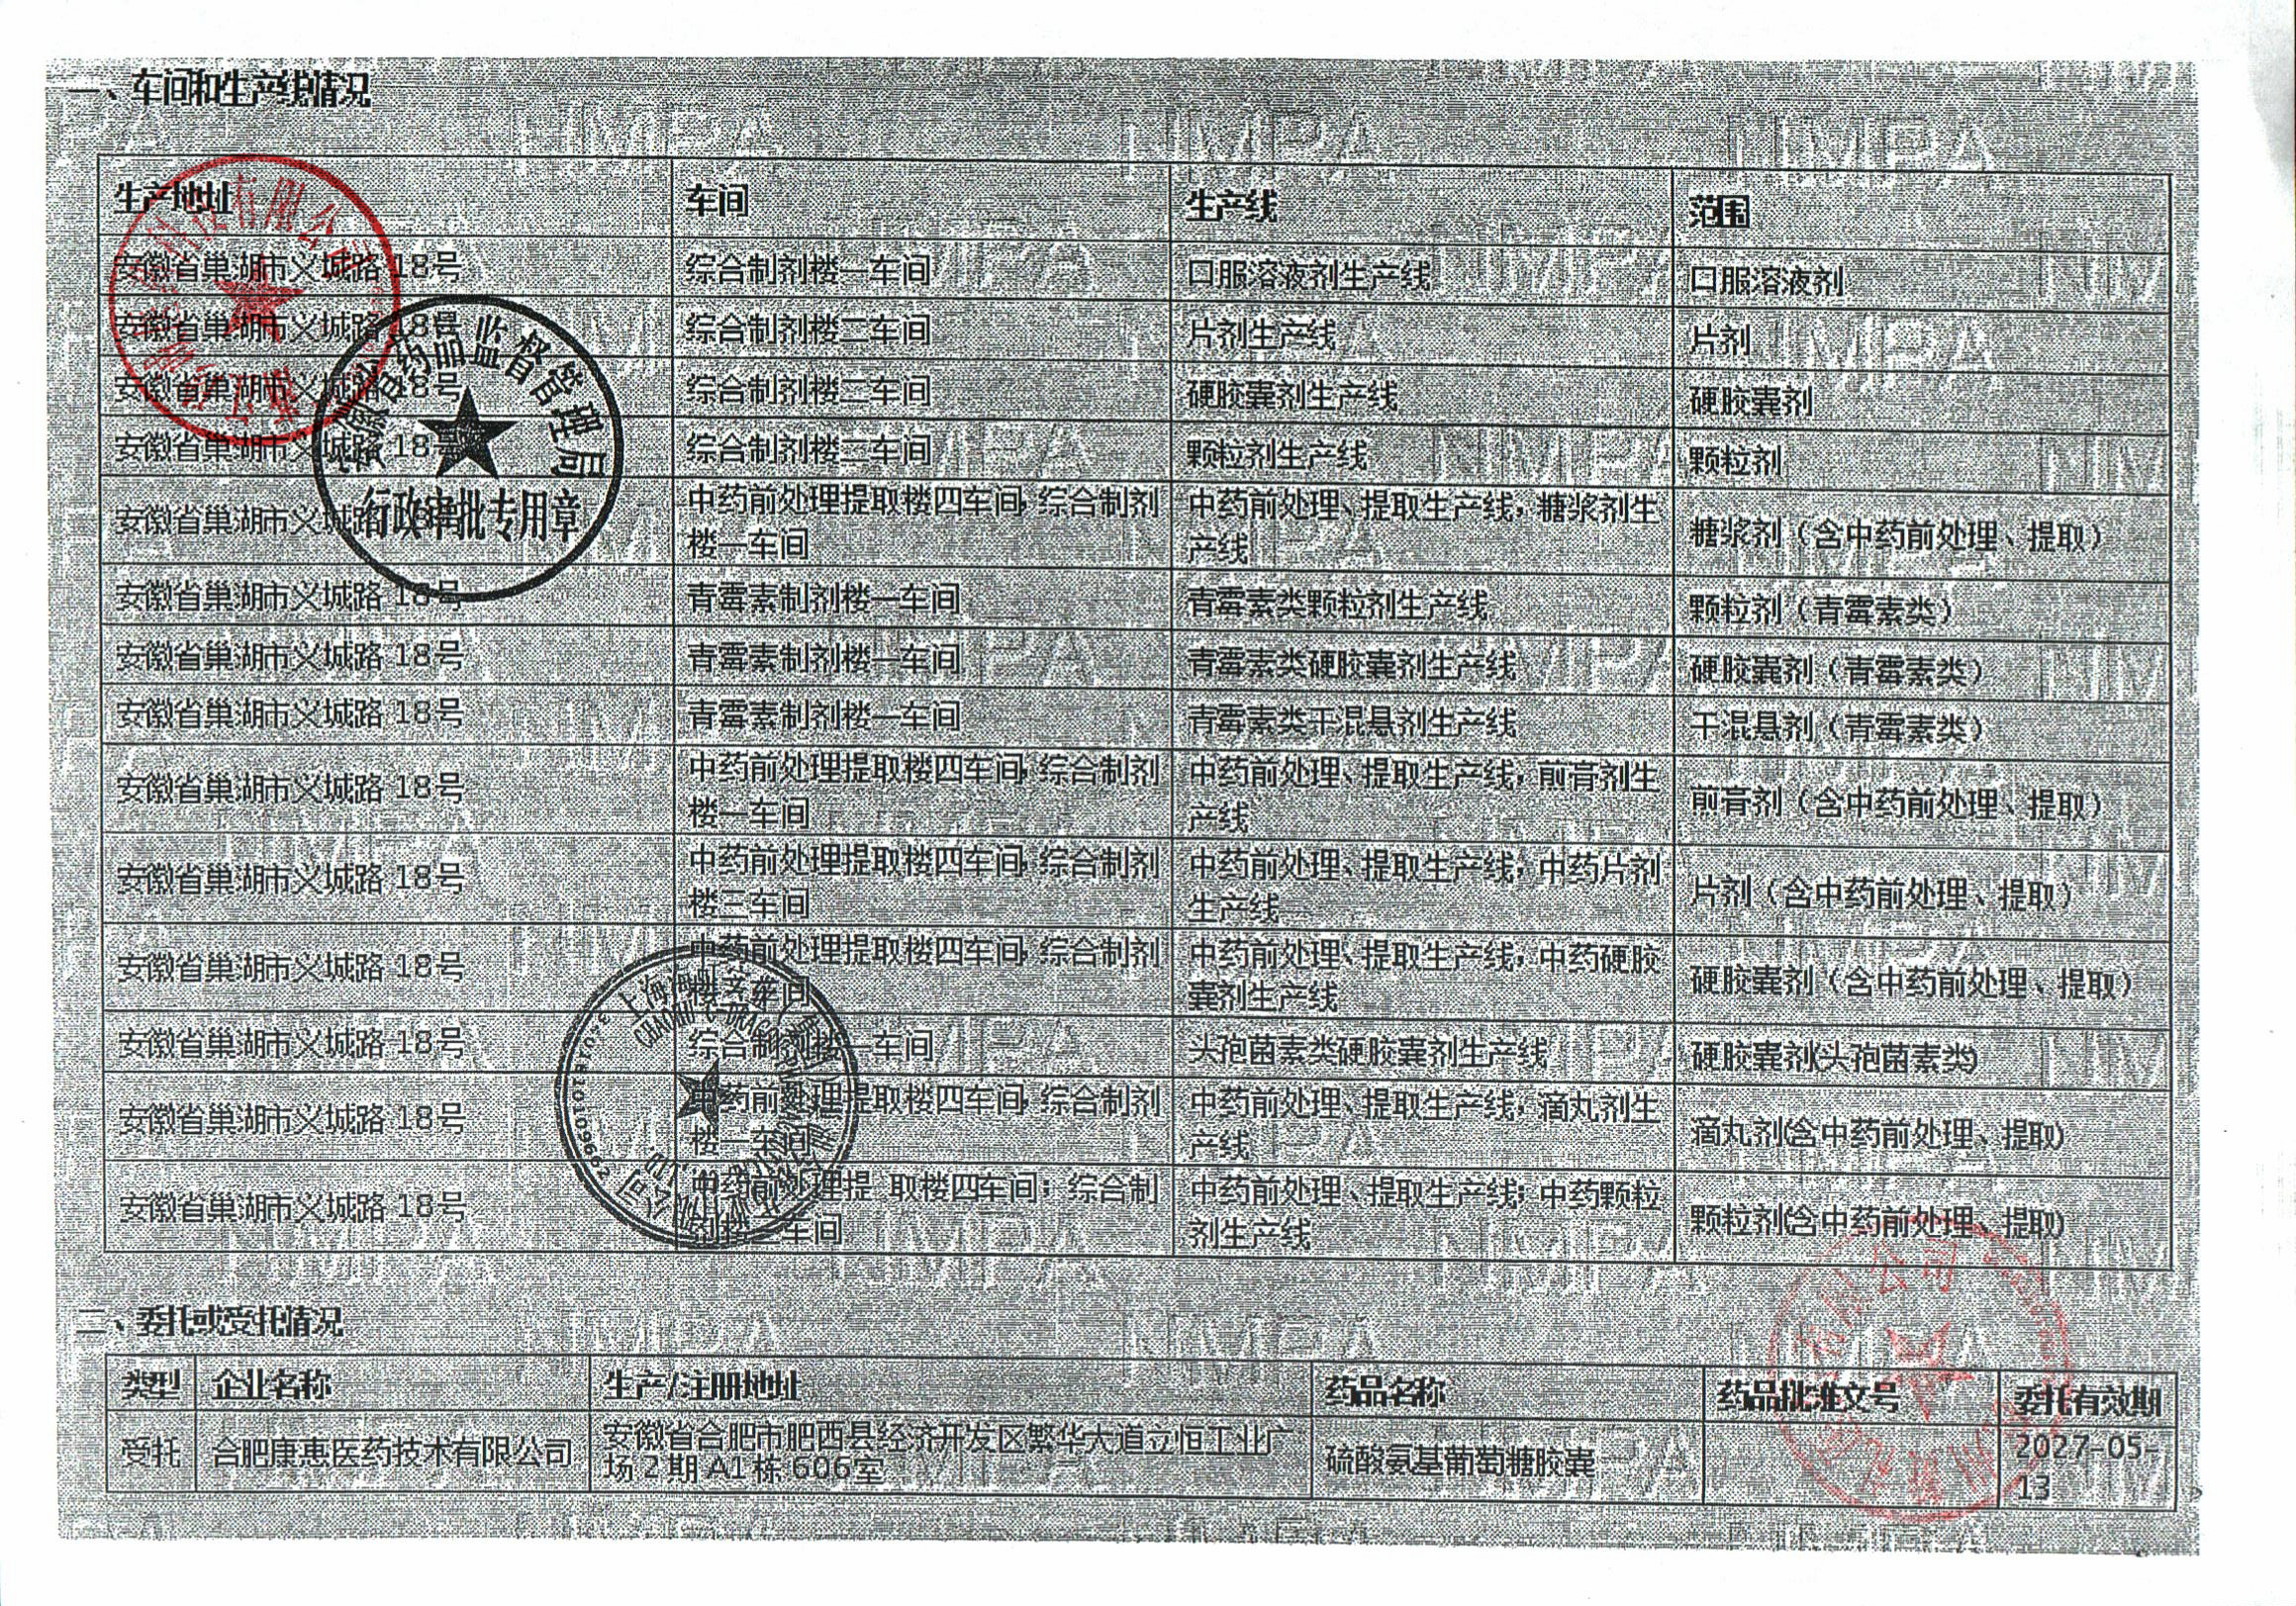 一、车间和生产线情况
生产地址 车间 生产线 范围
安徽省巢湖市义城路 18号 综合制剂楼一车间 口服溶液剂生产线 口服溶液剂
安徽省巢湖市义城路 18号 综合制剂楼二车间 片剂生产线 片剂
安徽省巢湖市义城路 18号 综合制剂楼二车间 硬胶囊剂生产线 硬胶囊剂
安徽省巢湖市义城路 18号 综合制剂楼二车间 颗粒剂生产线 颗粒剂
安徽省巢湖市义城路 18号 中药前处理提取楼四车间, 综合制剂 中药前处理、提取生产线, 糖浆剂生 糖浆剂（含中药前处理、提取）
楼一车间 产线
安徽省巢湖市义城路 18号 青霉素制剂楼一车间 青霉素类颗粒剂生产线 颗粒剂（青霉素类）
安徽省巢湖市义城路 18号 青霉素制剂楼一车间 青霉素类硬胶囊剂生产线 硬胶囊剂（青霉素类）
安徽省巢湖市义城路 18号 青霉素制剂楼一车间 青霉素类干混悬剂生产线 干混悬剂（青霉素类）
安徽省巢湖市义城路 18号 中药前处理提取楼四车间, 综合制剂 中药前处理、提取生产线, 煎膏剂生 煎膏剂（含中药前处理、提取）
楼一车间 产线
安徽省巢湖市义城路 18号 中药前处理提取楼四车间, 综合制剂 中药前处理、提取生产线, 中药片剂 片剂（含中药前处理、提取）
楼三车间 生产线
安徽省巢湖市义城路 18号 中药前处理提取楼四车间, 综合制剂 中药前处理、提取生产线, 中药硬胶 硬胶囊剂（含中药前处理、提取）
车间 囊剂生产线
安徽省巢湖市义城路 18号 综合制剂楼一车间 头孢菌素类硬胶囊剂生产线 硬胶囊剂(头孢菌素类)
安徽省巢湖市义城路 18号 中药前处理提取楼四车间, 综合制剂 中药前处理、提取生产线, 滴丸剂生 滴丸剂(含中药前处理、提取)
楼一车间 产线
安徽省巢湖市义城路 18号 中药前处理提 取楼四车间; 综合制 中药前处理、提取生产线; 中药颗粒 颗粒剂(含中药前处理、提取)
剂楼 车间 剂生产线
安徽省药品监督管理局
行政审批专用章
有限公司
上海
3401810109662
有限公司
二、委托或受托情况
类型 企业名称 生产/注册地址 药品名称 药品批准文号 委托有效期
受托 合肥康惠医药技术有限公司 安徽省合肥市肥西县经济开发区繁华大道立恒工业广 硫酸氨基葡萄糖胶囊 2027-05-
场 2 期 A1 栋 606室 13
NMPA